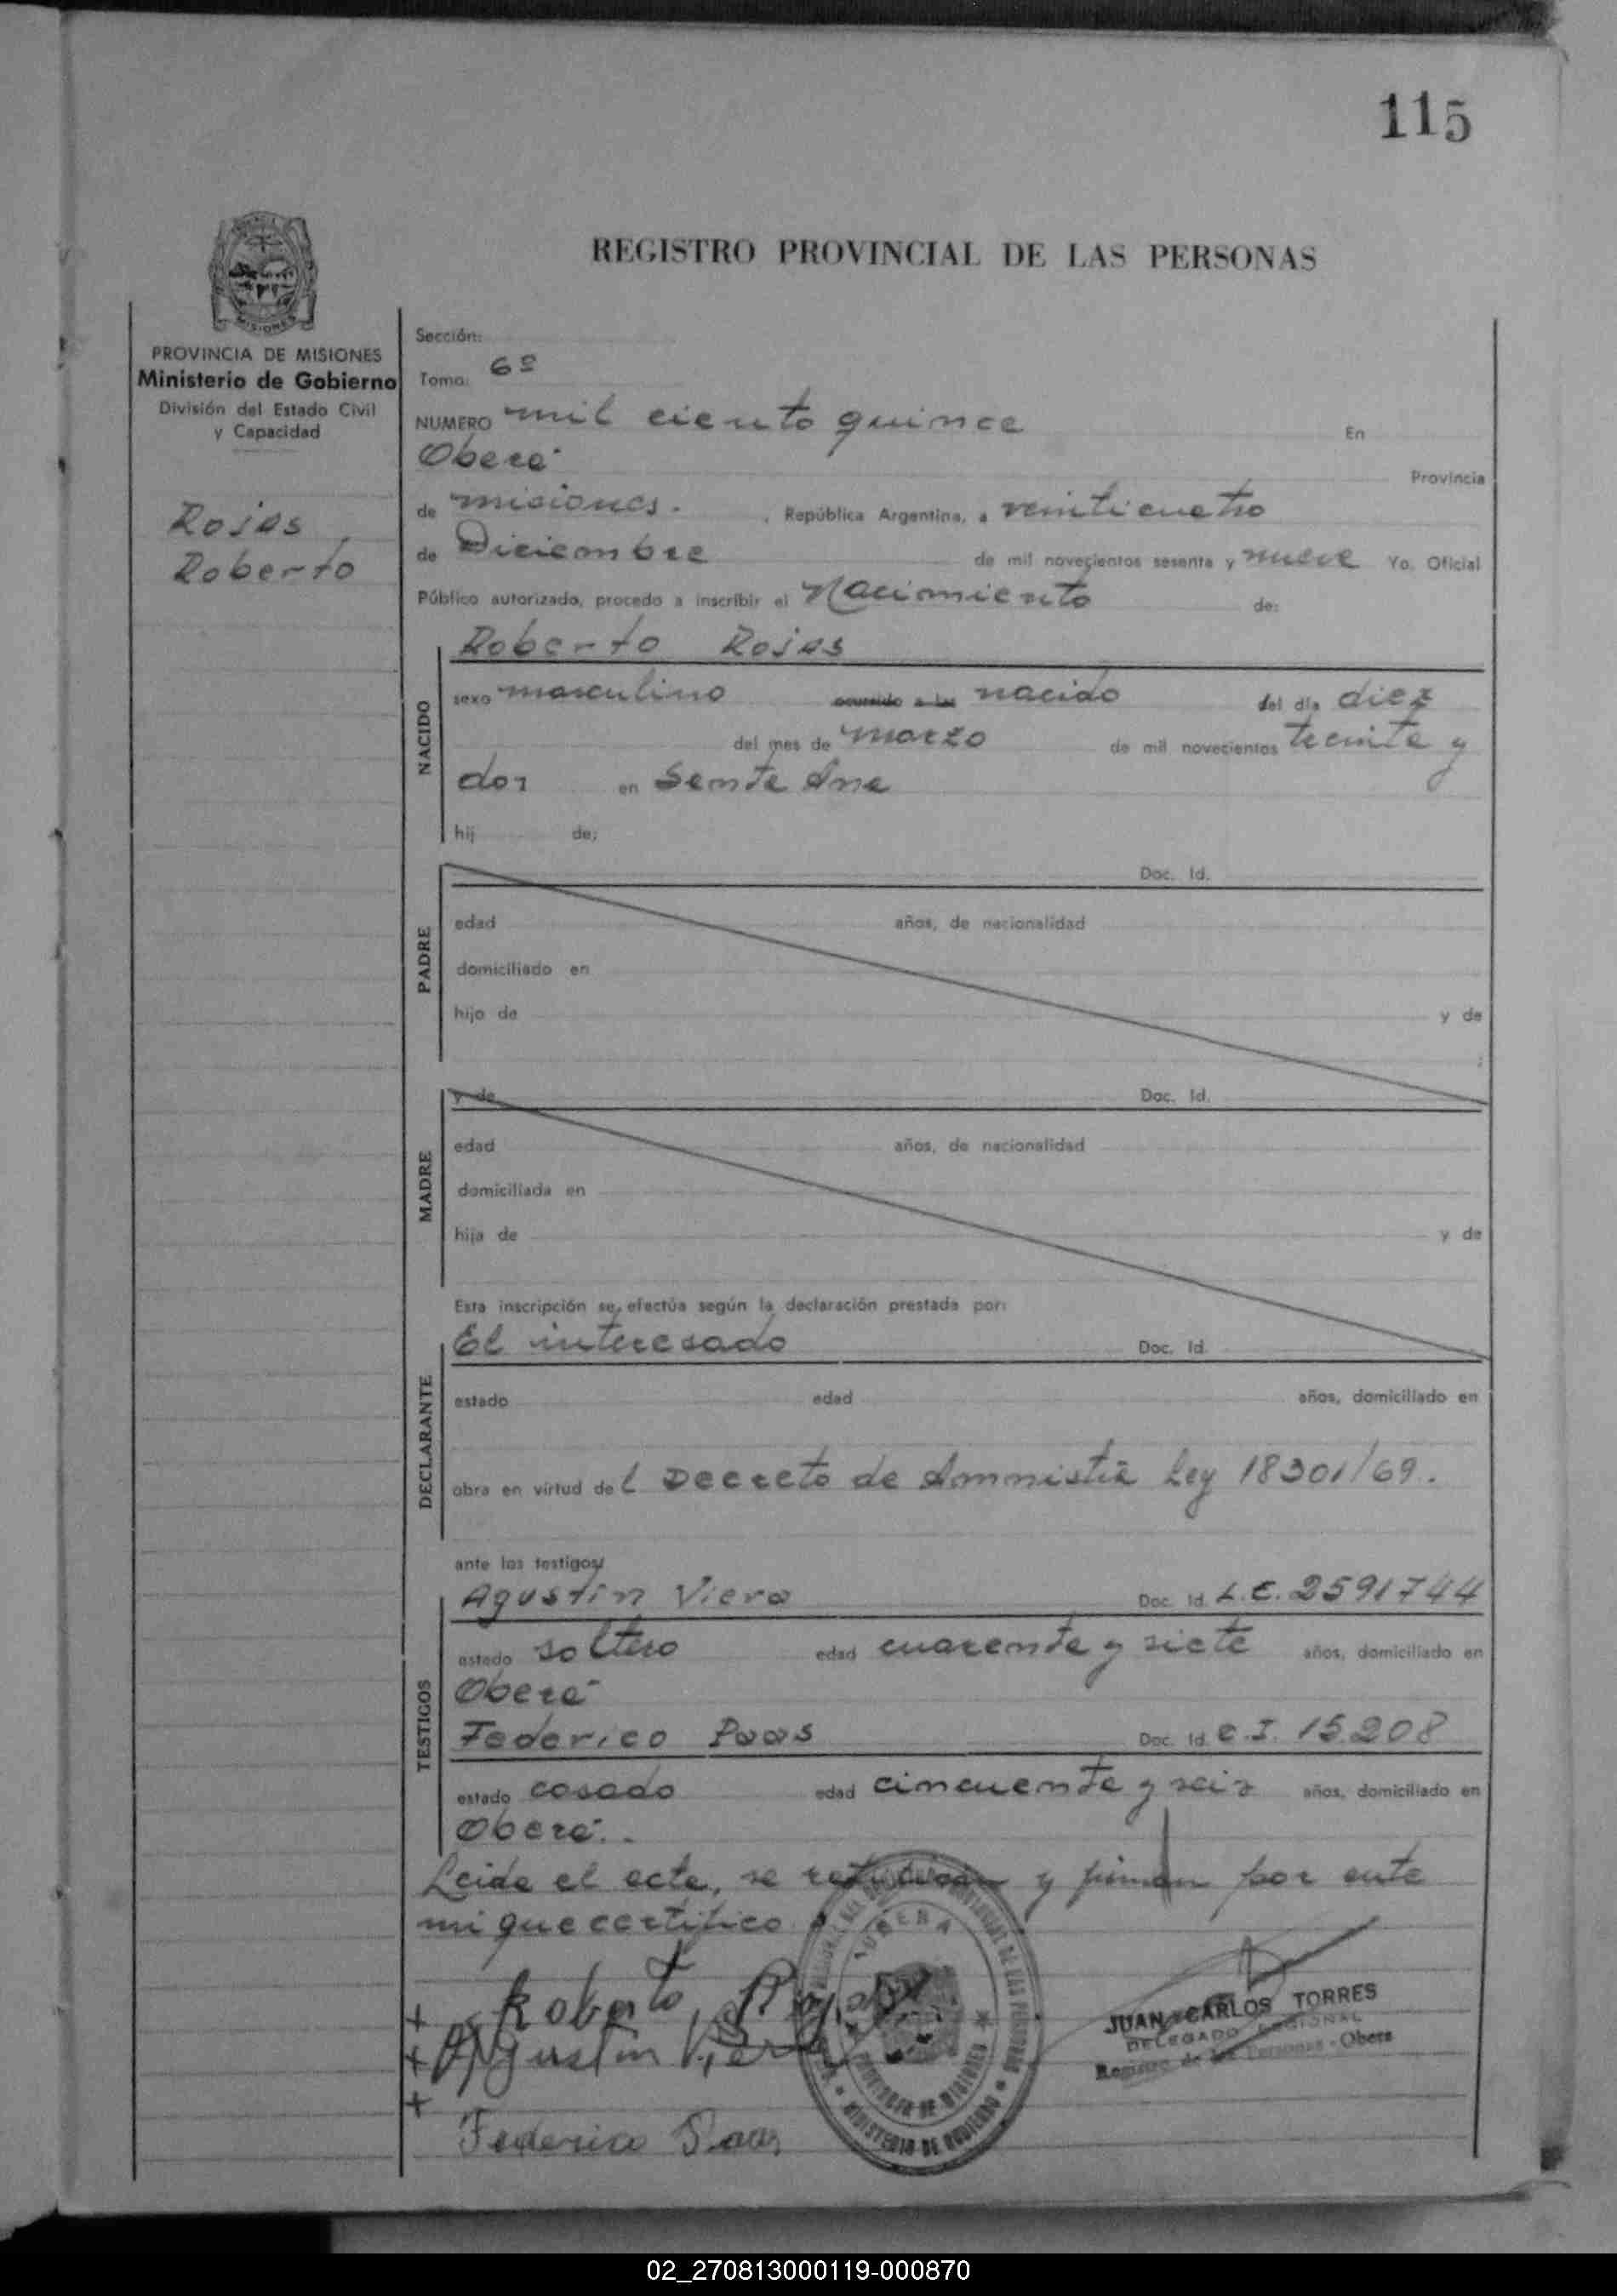 115
REGISTRO PROVINCIAL DE LAS PERSONAS
MISIONES
PROVINCIA DE MISIONES
Ministerio de Gobierno
División del Estado Civil
y Capacidad
Rojas
Roberto
Sección:
Tomo: 6º
NUMERO mil ciento quince En
Oberá Provincia
de misiones. , República Argentina, a veinticuatro
de Diciembre de mil novecientos sesenta y nueve Yo. Oficial
Público autorizado, procedo a inscribir el Nacimiento de:
Roberto Rojas
NACIDO
sexo masculino ocurrido a las nacido del día diez
del mes de marzo de mil novecientos treinta y
dos en Santa Ana
hij de:
PADRE
Doc. Id.
edad años, de nacionalidad
domiciliado en
hijo de y de
MADRE
y de Doc. Id.
edad años, de nacionalidad
domiciliada en
hija de y de
Esta inscripción se efectúa según la declaración prestada por:
DECLARANTE
El interesado Doc. Id.
estado edad años, domiciliado en
obra en virtud del Decreto de Amnistía Ley 18301/69.
ante los testigos
TESTIGOS
Agustin Viera Doc. Id. L.E. 2591744
estado soltero edad cuarenta y siete años, domiciliado en
Oberá
Federico Paas Doc. Id. C.I. 15.208
estado casado edad cincuenta y seis años, domiciliado en
Oberá.
Leida el acta, se ratifican y firman por ante
mi que certifico
+ Roberto Rojas
+ Agustin Viera
+
Federico Paas
OBERA
PROVINCIA DE MISIONES
MINISTERIO DE GOBIERNO
JUAN CARLOS TORRES
DELEGADO REGIONAL
Registro de las Personas - Obera
02_270813000119-000870